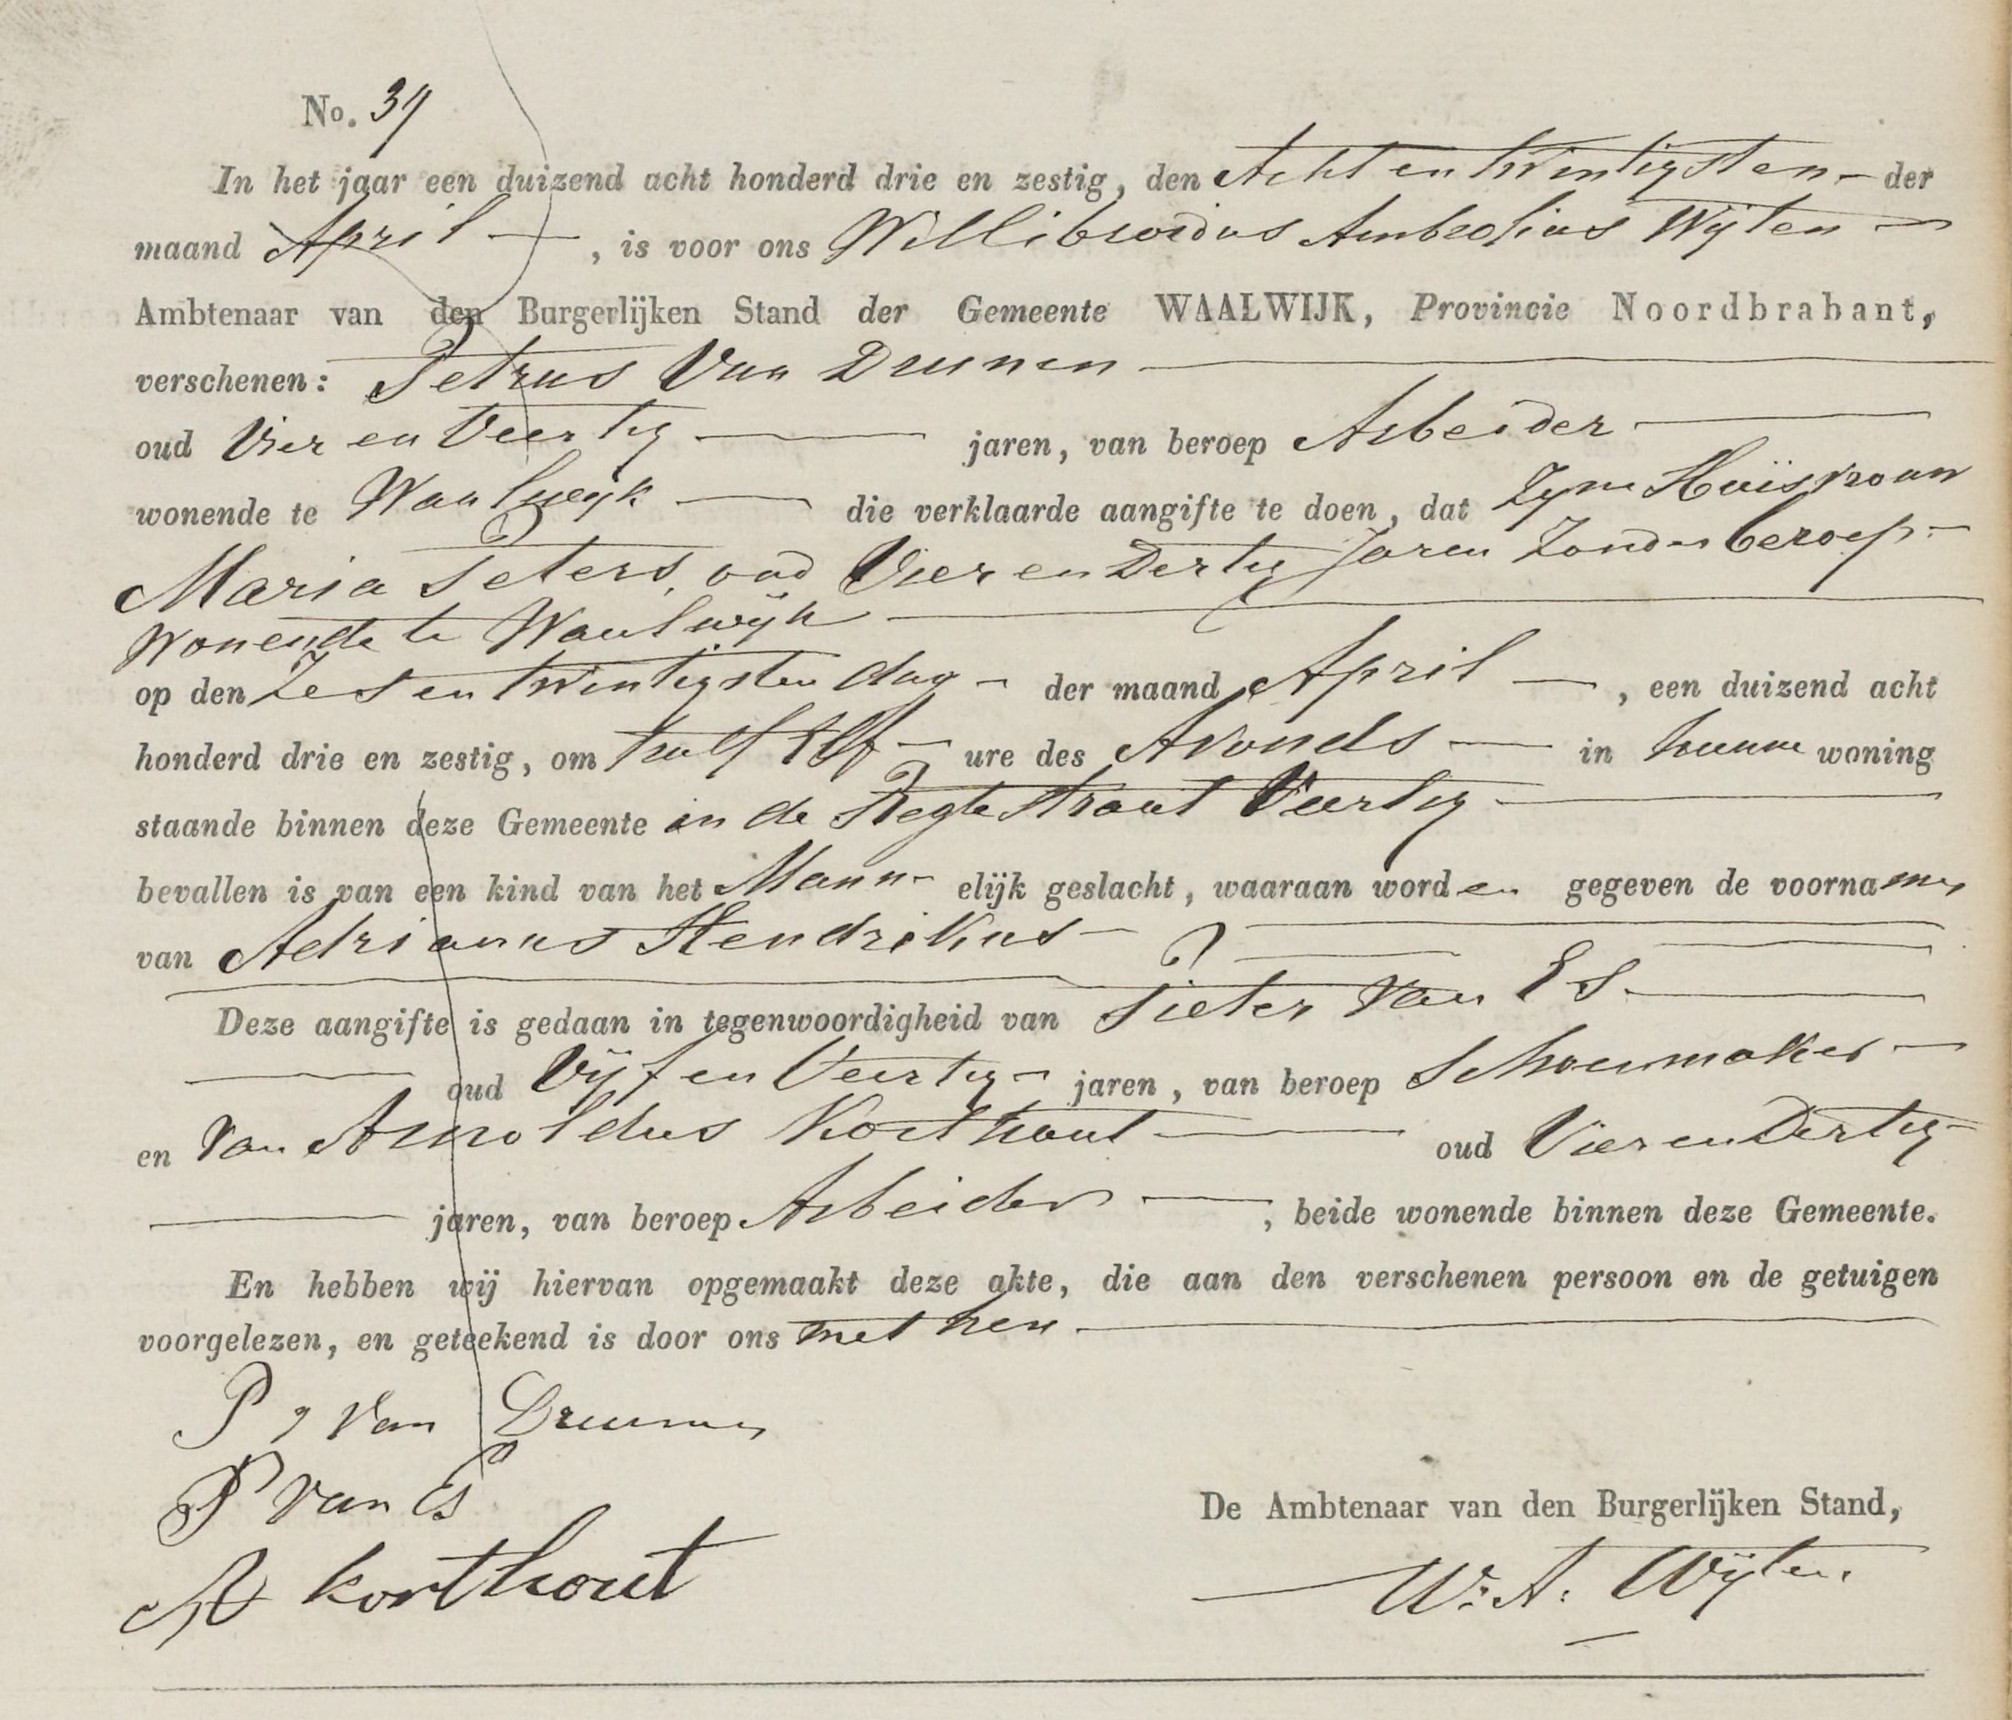 No. 39
In het jaar een duizend acht honderd drie en zestig, den Acht en twintigsten der
maand April, is voor ons Willibrordus Ambrosius Wijten
Ambtenaar van den Burgerlijken Stand der Gemeente WAALWIJK, Provincie Noordbrabant,
verschenen: Petrus Van Drunen
oud Vier en Veertig jaren, van beroep Arbeider
wonende te Waalwijk die verklaarde aangifte te doen, dat Zijne Huisvrouw
Maria Peters, oud Vier en Dertig Jaren Zonder beroep
Wonende te Waalwijk
op den Zes en twintigsten dag der maand April, een duizend acht
honderd drie en zestig, om half Elf ure des Avonds in hunne woning
staande binnen deze Gemeente in de Regtestraat Veertig
bevallen is van een kind van het Mannelijk geslacht, waaraan worden gegeven de voornamen
van Adrianus Hendrikus
Deze aangifte is gedaan in tegenwoordigheid van Pieter Van Es
oud Vijf en Veertig jaren, van beroep Schoenmaker
en Van Arnoldus Korthout oud Vier en Dertig
jaren, van beroep Arbeider, beide wonende binnen deze Gemeente.
En hebben wij hiervan opgemaakt deze akte, die aan den verschenen persoon en de getuigen
voorgelezen, en geteekend is door ons met hen
P, Van Drunen
P van Es
De Ambtenaar van den Burgerlijken Stand,
A korthout
W. A. Wijten.